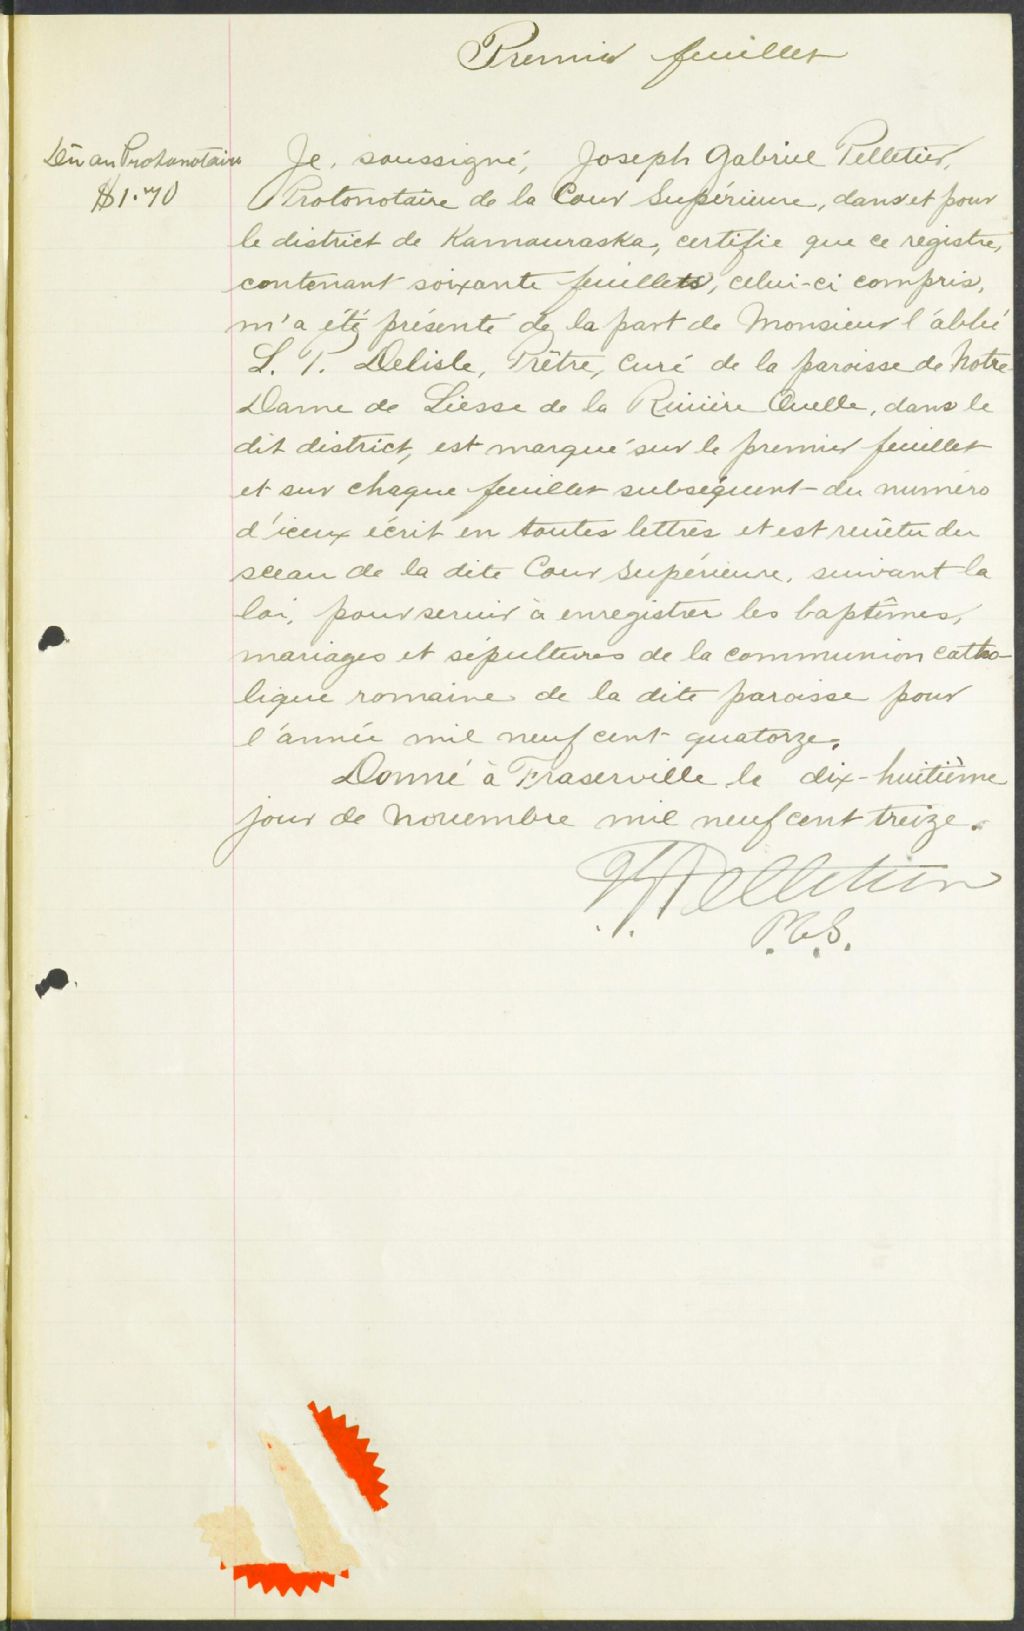 Premier feuillet
Dû au Protonotaire
$1.70
Je, soussigné, Joseph Gabriel Pelletier,
Protonotaire de la Cour Supérieure, dans et pour
le district de Kamouraska, certifie que ce registre,
contenant soixante feuillets, celui-ci compris,
m'a été présenté de la part de Monsieur l'abbé
L. P. Delisle, Prêtre, Curé de la paroisse de Notre
Dame de Liesse de la Rivière Ouelle, dans le
dit district, est marqué sur le premier feuillet
et sur chaque feuillet subséquent du numéro
d'iceux écrit en toutes lettres et est revêtu du
sceau de la dite Cour Supérieure, suivant la
loi, pour servir à enregistrer les baptêmes,
mariages et sépultures de la communion catho-
lique romaine de la dite paroisse pour
l'année mil neuf cent quatorze.
Donné à Fraserville le dix-huitième
jour de novembre mil neuf cent treize.
Pelletier
P.C.S.